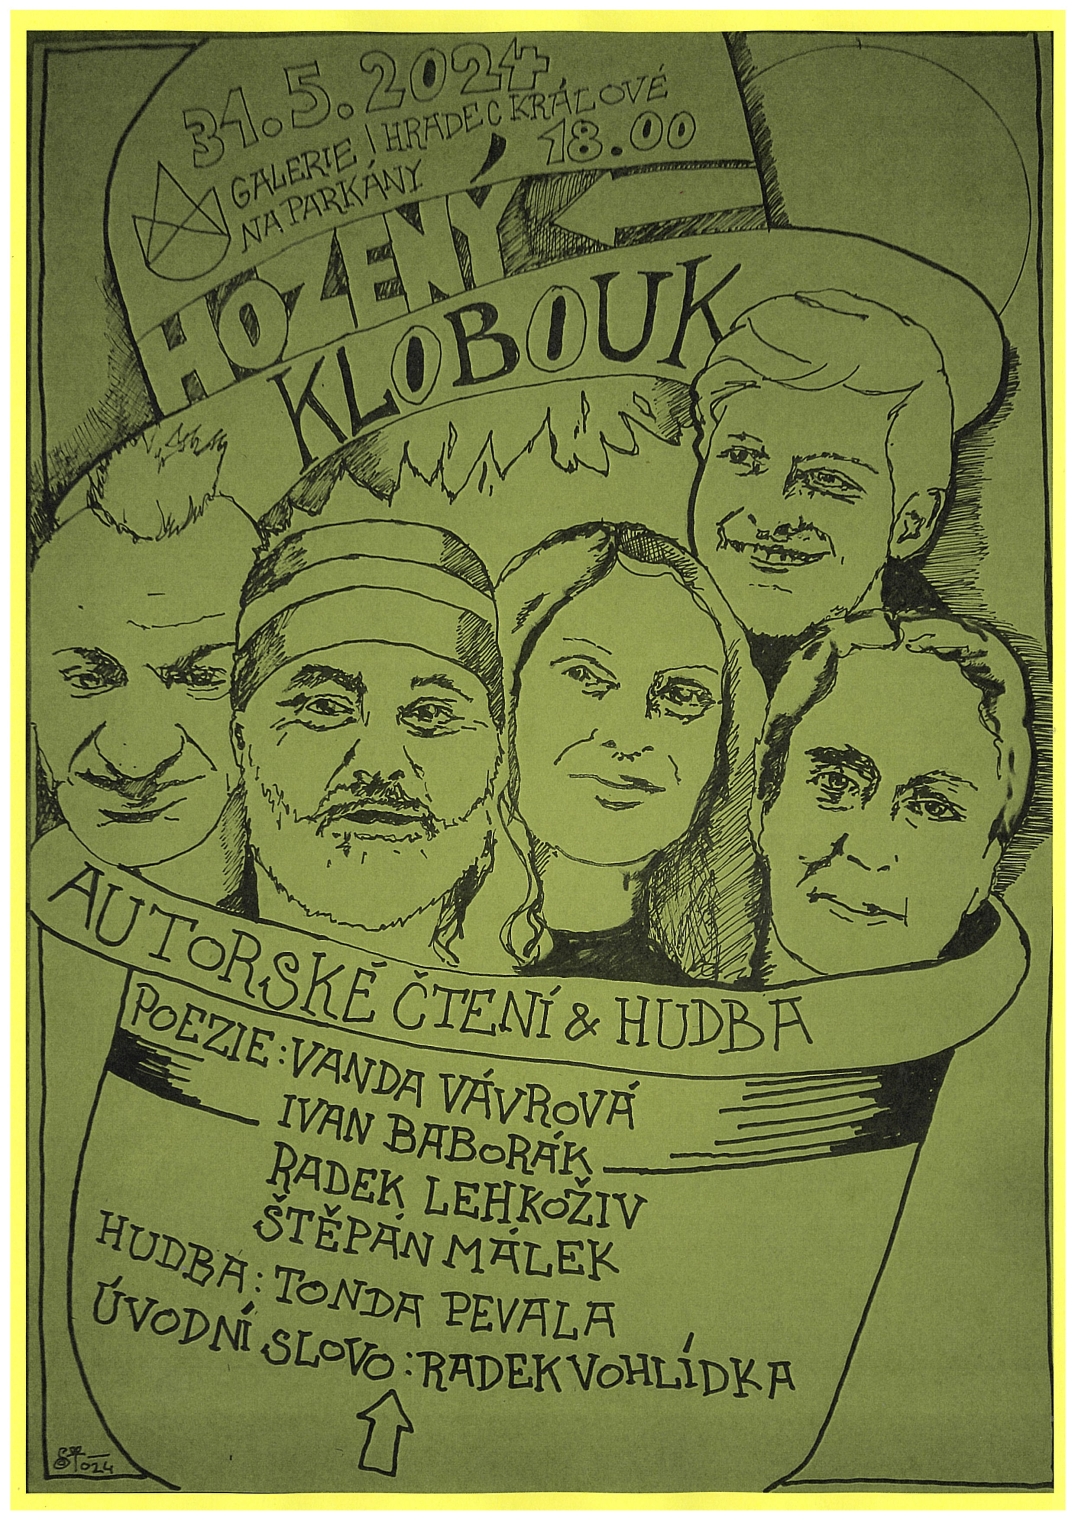 31.5.2024
GALERIE | HRADEC KRÁLOVÉ
NA PARKÁNY 18.00
HOZENÝ
KLOBOUK
AUTORSKÉ ČTENÍ & HUDBA
POEZIE: VANDA VÁVROVÁ
IVAN BABORÁK
RADEK LEHKOŽIV
ŠTĚPÁN MÁLEK
HUDBA: TONDA PEVALA
ÚVODNÍ SLOVO: RADEK VOHLÍDKA
024